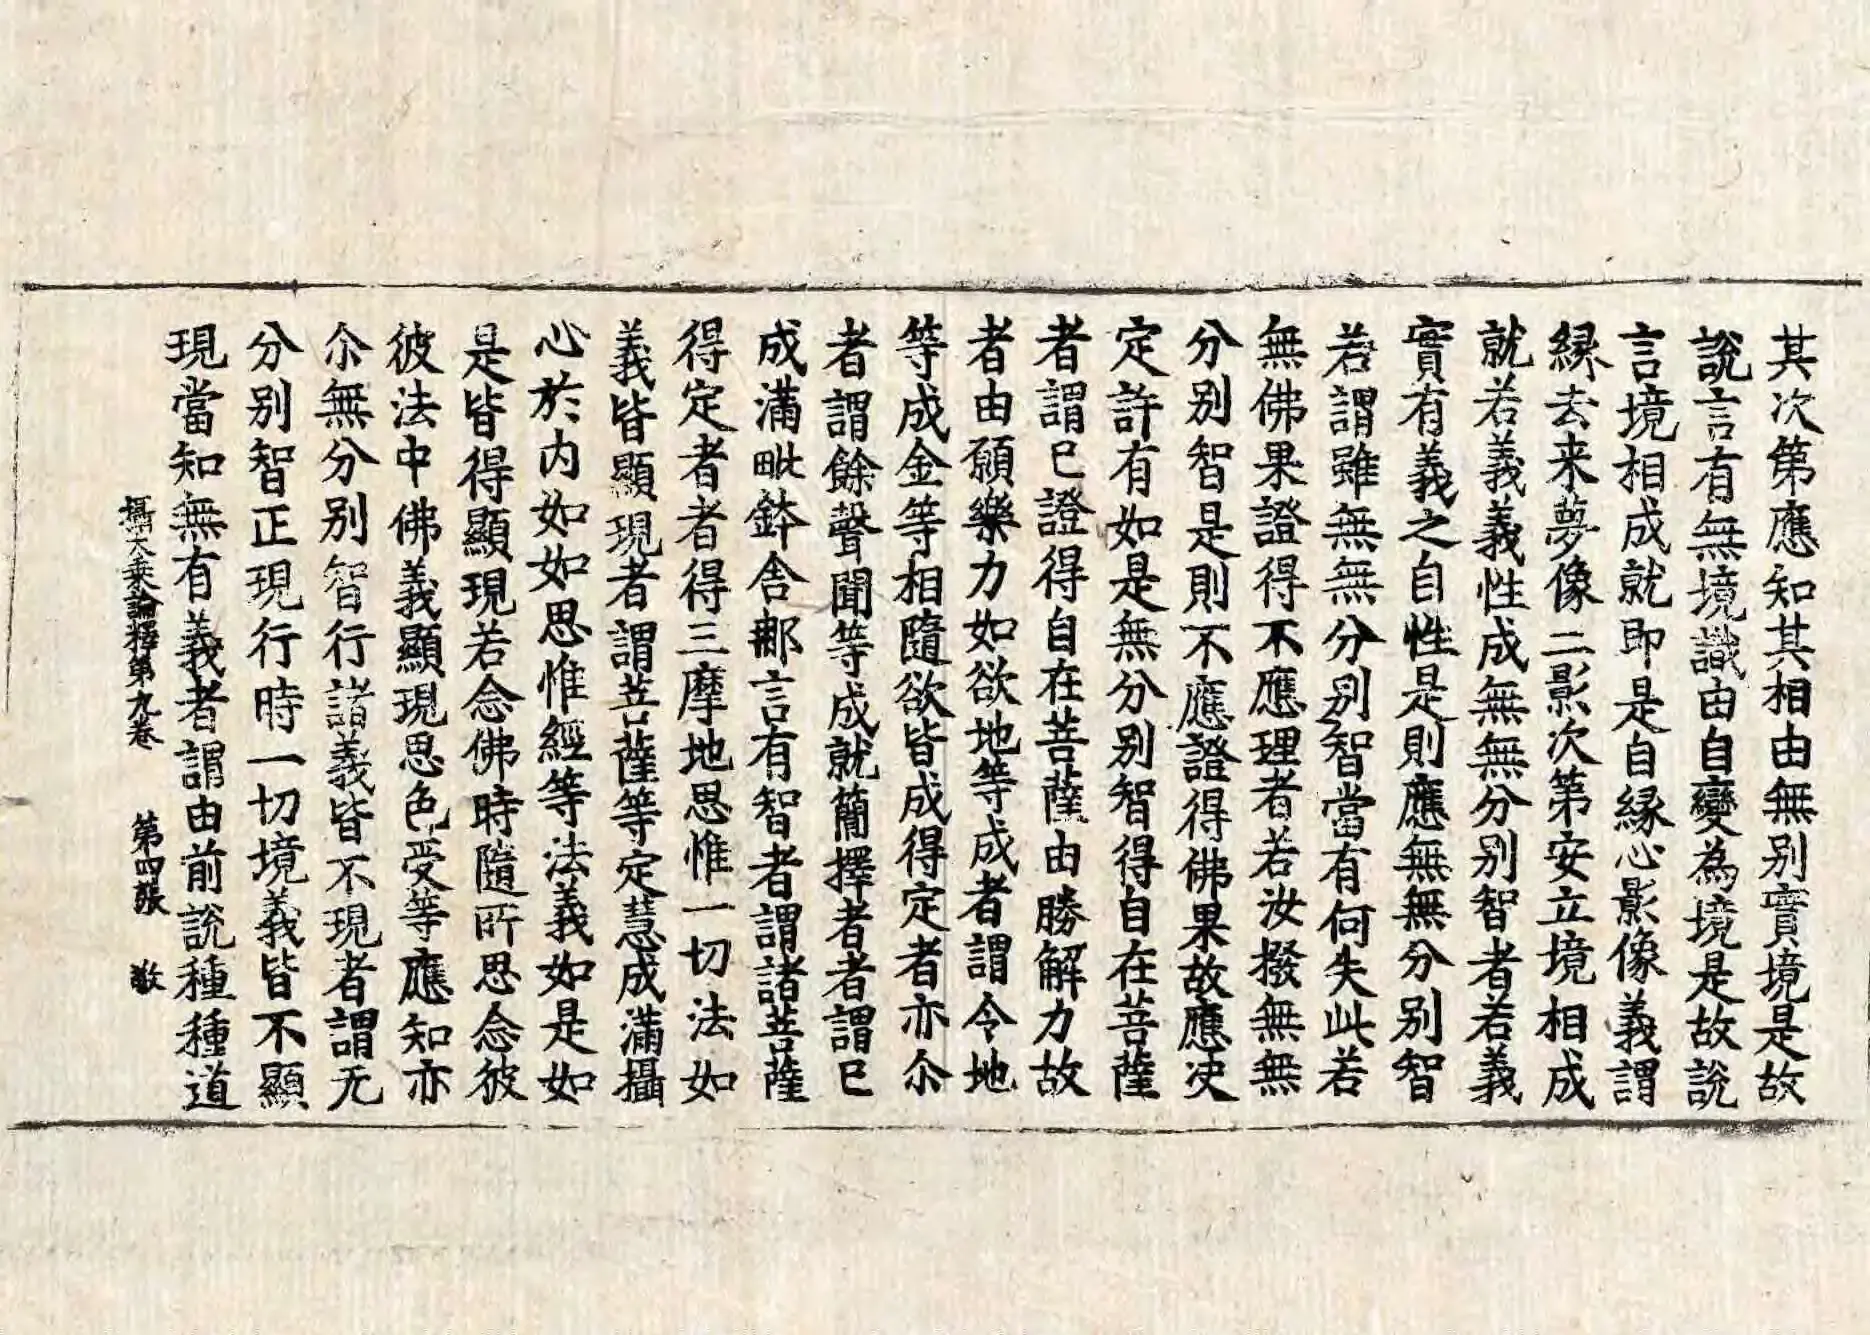 其次第應知其相由無別實境是故
說言有無境識由自變為境是故說
言境相成就即是自緣心影像義謂
緣去来夢像二影次第安立境相成
就若義義義性成無無分別智者若義
實有義之自性是則應無無分別智
若謂雖無無分別智當有何失此若
無佛果證得不應理者若汝撥無無
分別智是則不應證得佛果故應决
定許有如是無分別智得自在菩薩
者謂已證得自在菩薩由勝解力故
者由願樂力如欲地等成者謂令地
等成金等相隨欲皆成得定者亦尒
者謂餘聲聞等成就簡擇者者謂已
成滿毗鉢舍那言有智者謂諸菩薩
得定者者得三摩地思惟一切法如
義皆顯現者謂菩薩等定慧成滿攝
心於内如如思惟經等法義如是如
是皆得顯現若念佛時隨所思念彼
彼法中佛義顯現思色受等應知亦
尒無分別智行諸義皆不現者謂无
分別智正現行時一切境義皆不顯
現當知無有義者謂由前說種種道
攝大乘論釋第九卷 第四張 敬